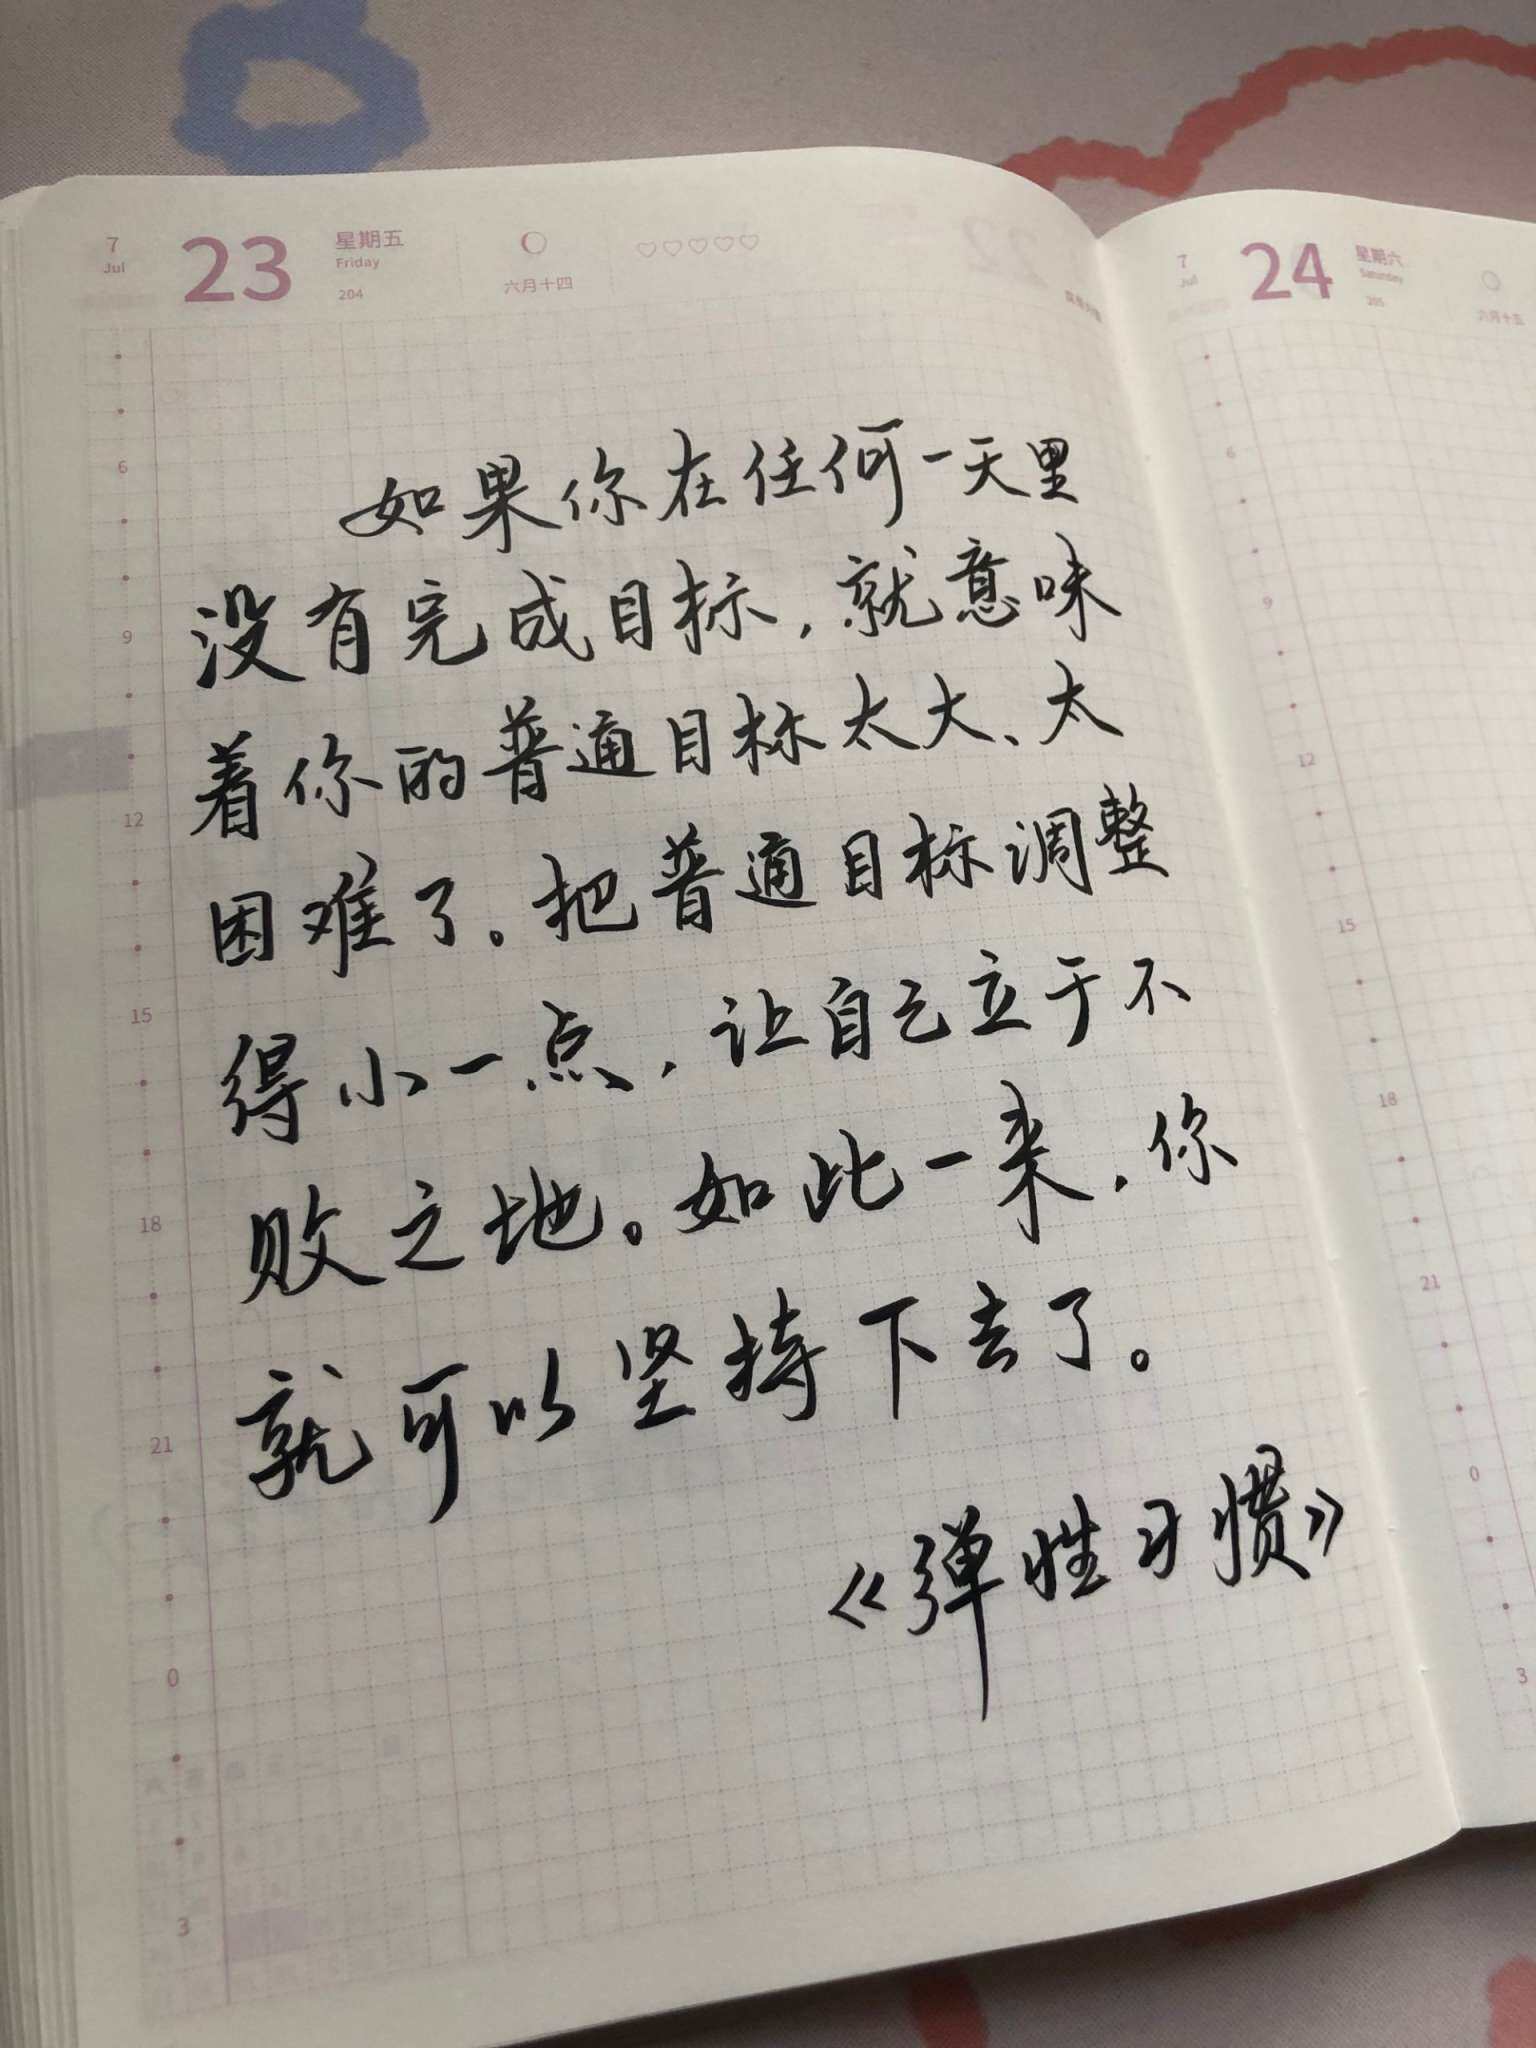 7
Jul
23
星期五
Friday
204
六月十四
7
Jul
24
星期六
Saturday
205
六月十五
如果你在任何一天里
没有完成目标,就意味
着你的普通目标太大、太
困难了。把普通目标调整
得小一点,让自己立于不
败之地。如此一来,你
就可以坚持下去了。
《弹性习惯》
6
9
12
15
18
21
0
3
6
9
12
15
18
21
0
3